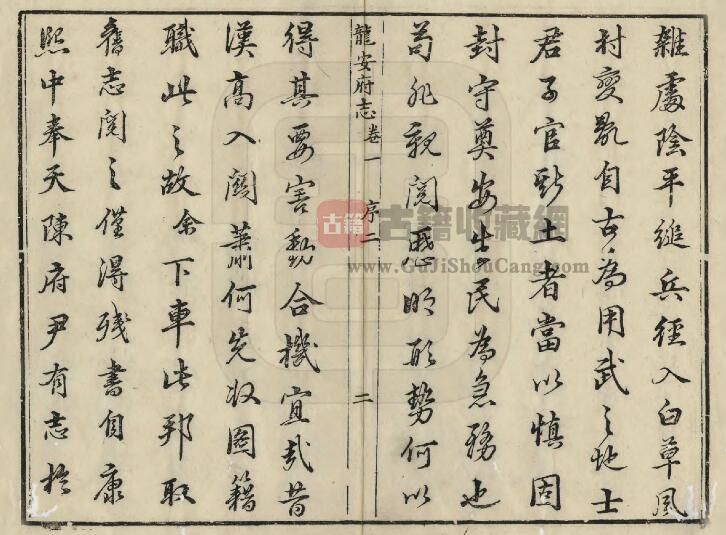 雜處陰平縋兵徑入白草風
村變自古為用武之地士
君子官斯土者當以慎固
封守奠安生民為急務也
苟非親閱歷明形勢何以
龍安府志 卷一 序二 二
得其要害動合機宜哉昔
漢高入關蕭何先收圖籍
職此之故余下車此邦取
舊志閱之僅得殘書自康
熙中奉天陳府尹有志於
古籍 古籍收藏網
www.GuJiShouCang.com